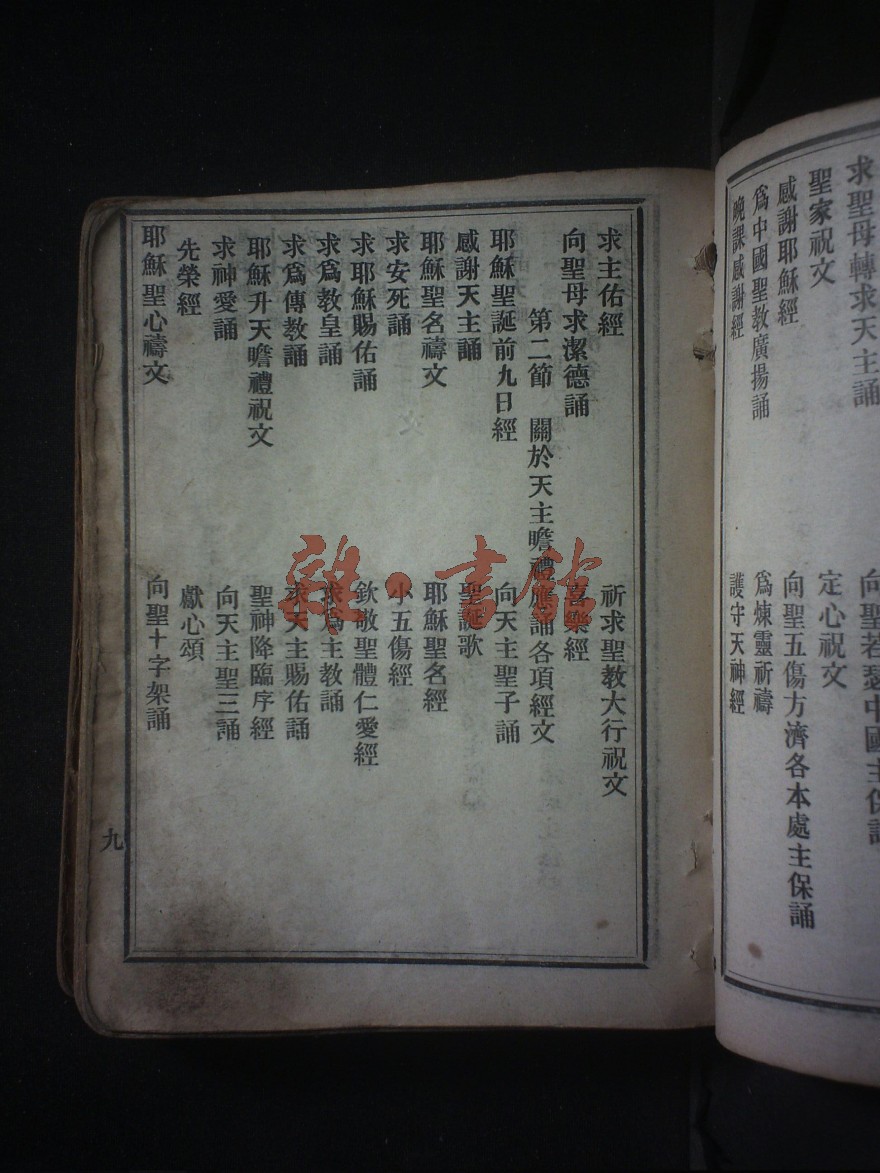 求聖母轉求天主誦 向聖若瑟中國主保誦
聖家祝文 定心祝文
感謝耶穌經 向聖五傷方濟各本處主保誦
為中國聖教廣揚誦 為煉靈祈禱
晚課感謝經 護守天神經
求主佑經 祈求聖教大行祝文
向聖母求潔德誦 喜樂經
第二節 關於天主瞻禮應誦各項經文
耶穌聖誕前九日經 向天主聖子誦
感謝天主誦 聖誕歌
耶穌聖名禱文 耶穌聖名經
求安死誦 小五傷經
求耶穌賜佑誦 欽敬聖體仁愛經
求為教皇誦 求為主教誦
求為傳教誦 求天主賜佑誦
耶穌升天瞻禮祝文 聖神降臨序經
求神愛誦 向天主聖三誦
先榮經 獻心頌
耶穌聖心禱文 向聖十字架誦
九
雜·書館